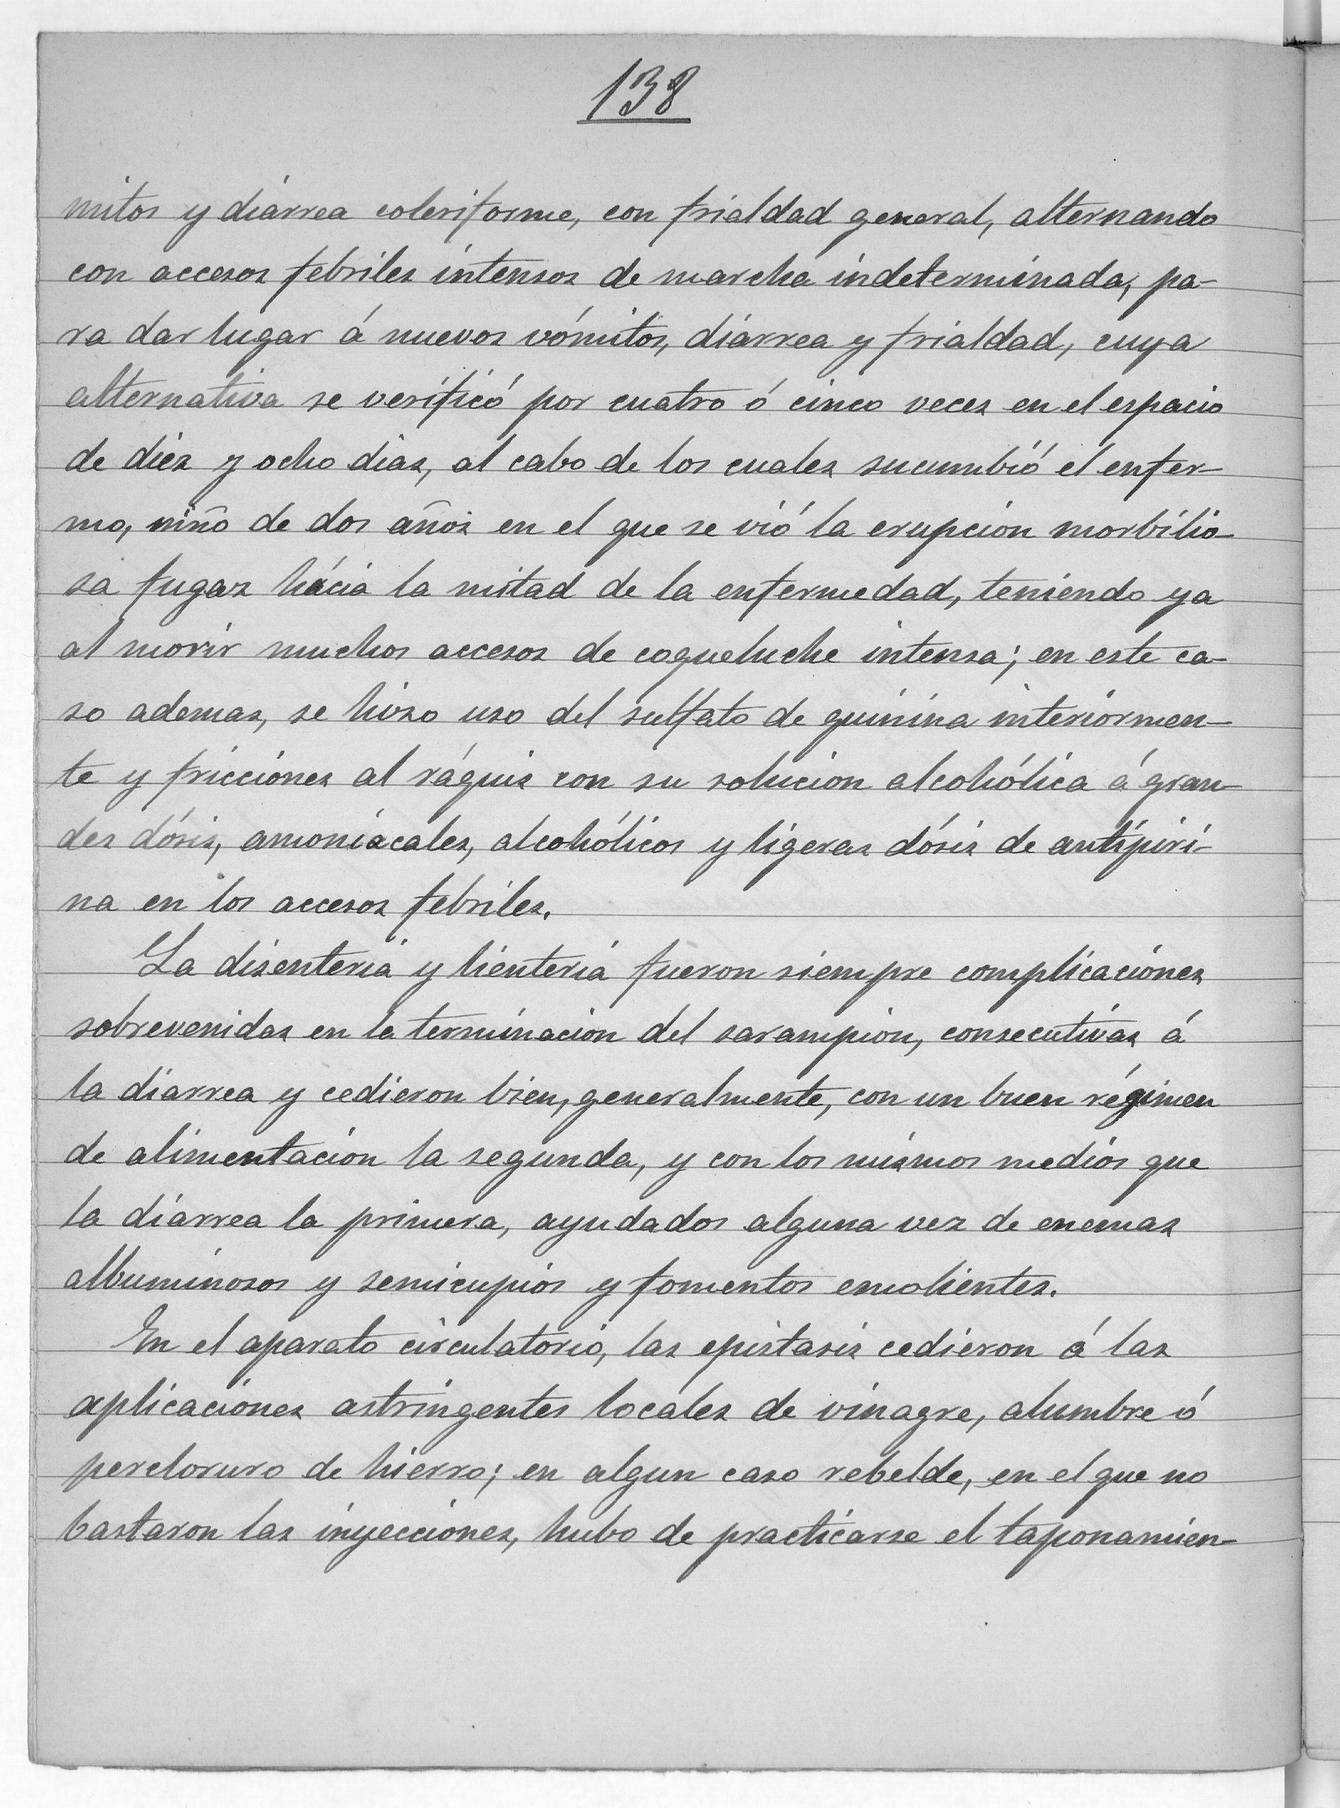 138
mitos y diárrea coleriforme, con frialdad general, alternando
con accesos febriles intensos de marcha indeterminada, pa-
ra dar lugar á nuevos vómitos, diárrea y frialdad, cuya
alternativa se verificó por cuatro ó cinco veces en el espacio
de diez y ocho dias, al cabo de los cuales sucumbió el enfer-
mo, niño de dos años en el que se vió la erupcion morbilio-
sa fugaz hácia la mitad de la enfermedad, teniendo ya
al morir muchos accesos de coqueluche intensa; en este ca-
so ademas, se hizo uso del sulfato de quinina interiormen-
te y fricciones al ráquis con su solucion alcohólica á gran-
des dósis, amoniacales, alcohólicos y ligeras dósis de antipiri-
na en los accesos febriles.
La disenteria y lienteria fueron siempre complicaciones
sobrevenidas en la terminacion del sarampion, consecutivas á
la diarrea y cedieron bien, generalmente, con un buen régimen
de alimentacion la segunda, y con los mismos medios que
la diárrea la primera, ayudados alguna vez de enemas
albuminosos y semicupios y fomentos emolientes.
En el aparato circulatorio, las epistasis cedieron á las
aplicaciones astringentes locales de vinagre, alumbre ó
percloruro de hierro; en algun caso rebelde, en el que no
bastaron las inyecciones, hubo de practicarse el taponamien-